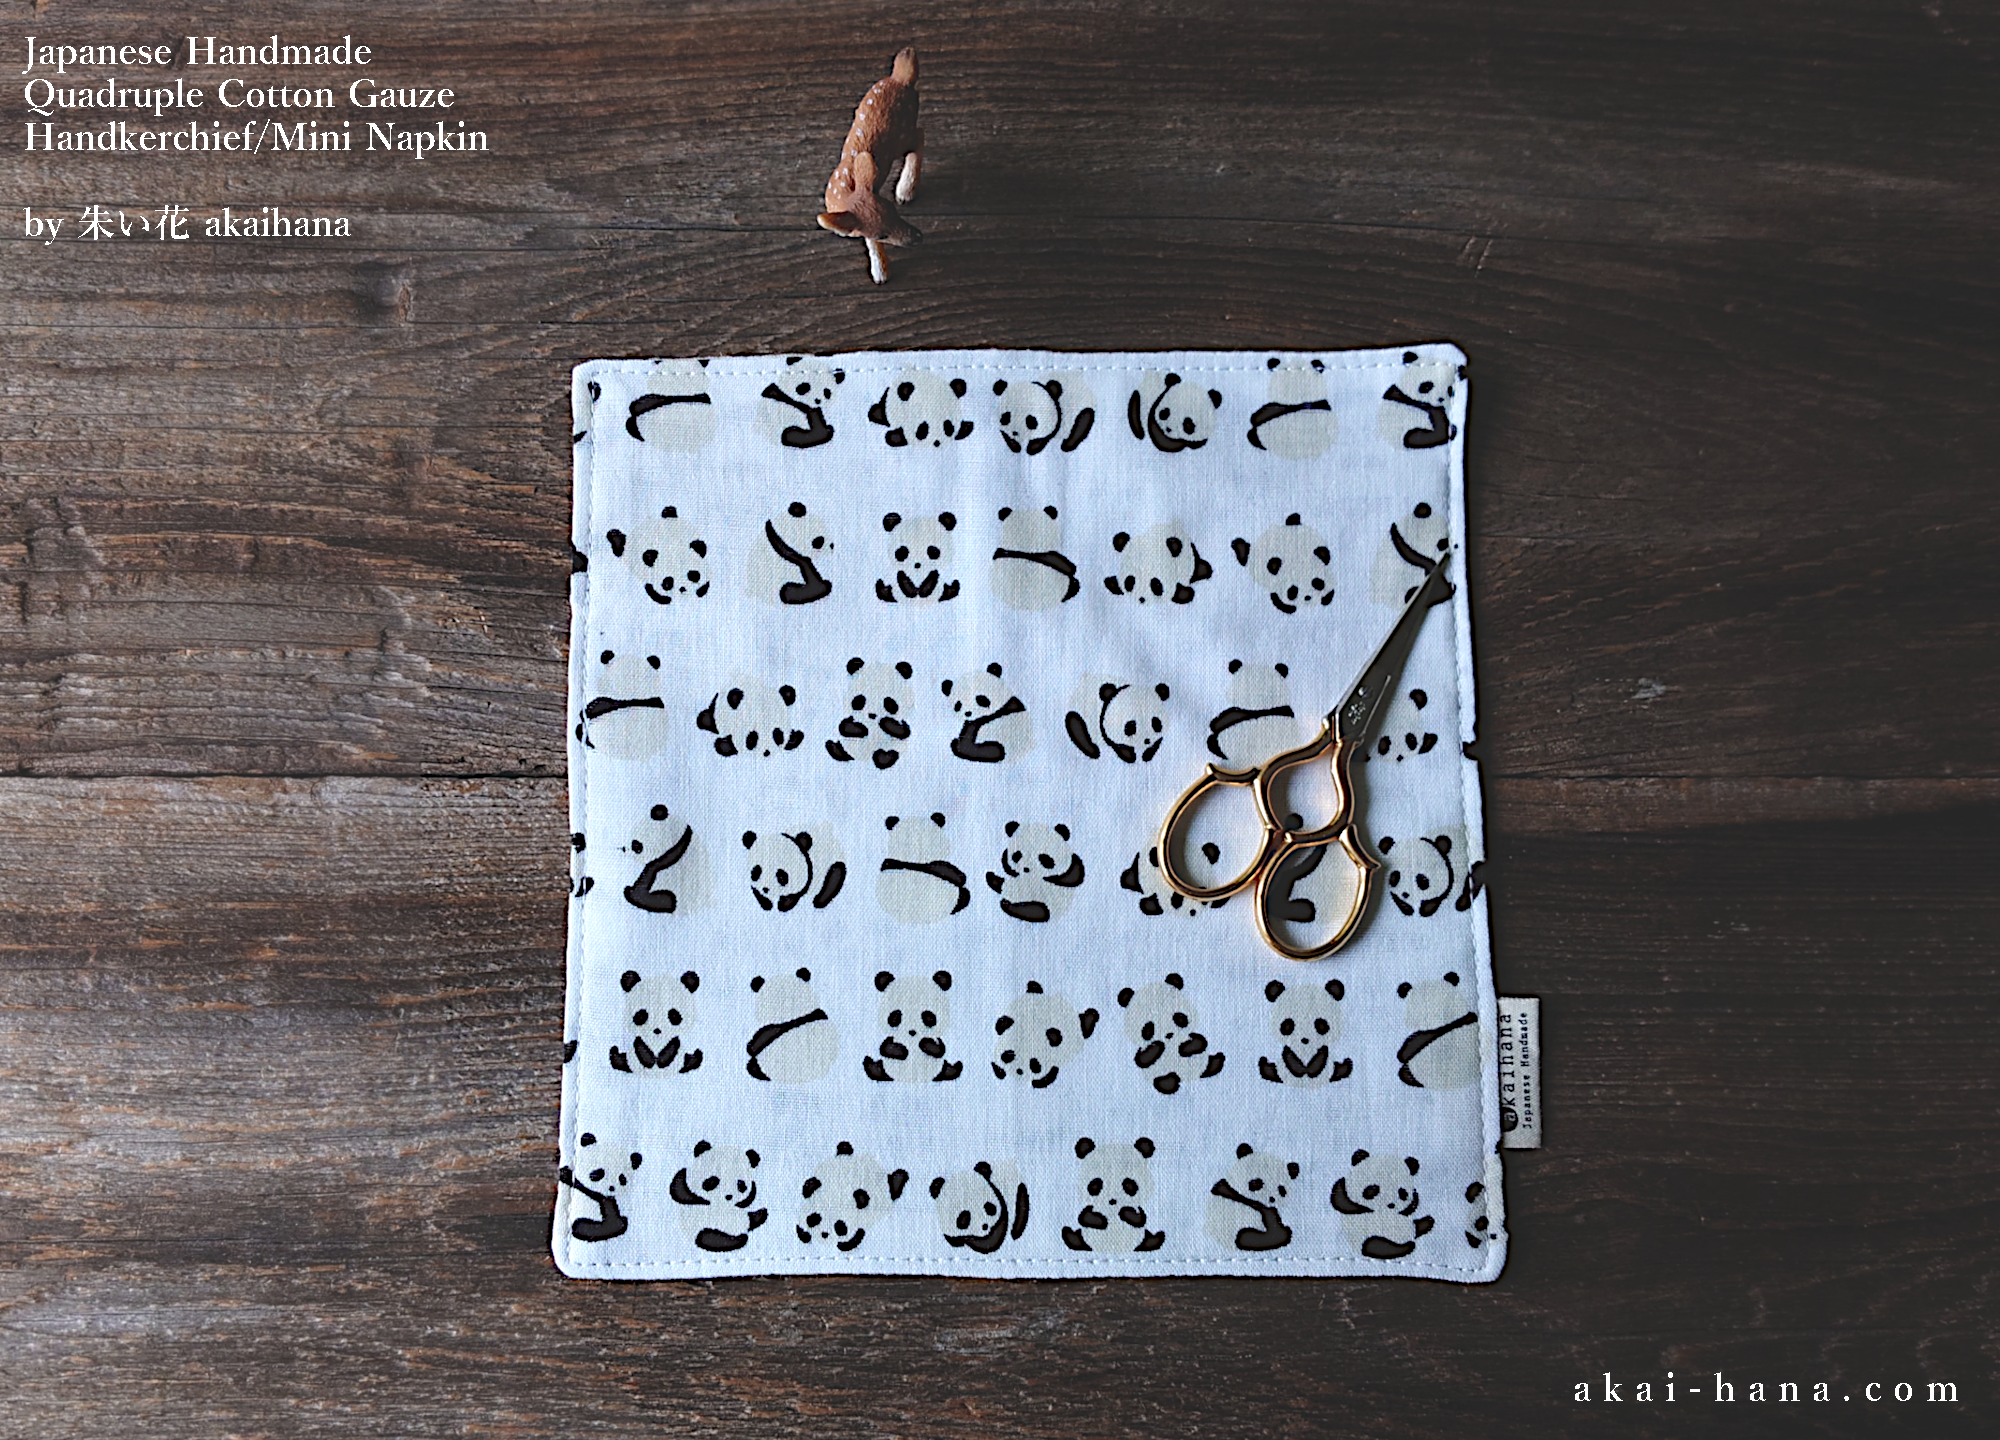 Japanese Handmade
Quadruple Cotton Gauze
Handkerchief/Mini Napkin
by 朱い花 akaihana
akaihana
Japanese Handmade
akai-hana.com